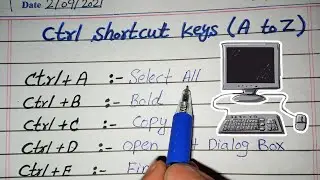 Date 2/09/2021
Ctrl shortcut keys (A to Z)
Ctrl + A :- Select All
Ctrl + B :- Bold
Ctrl + C :- Copy
Ctrl + D :- Open Dialog Box
Ctrl + E :-